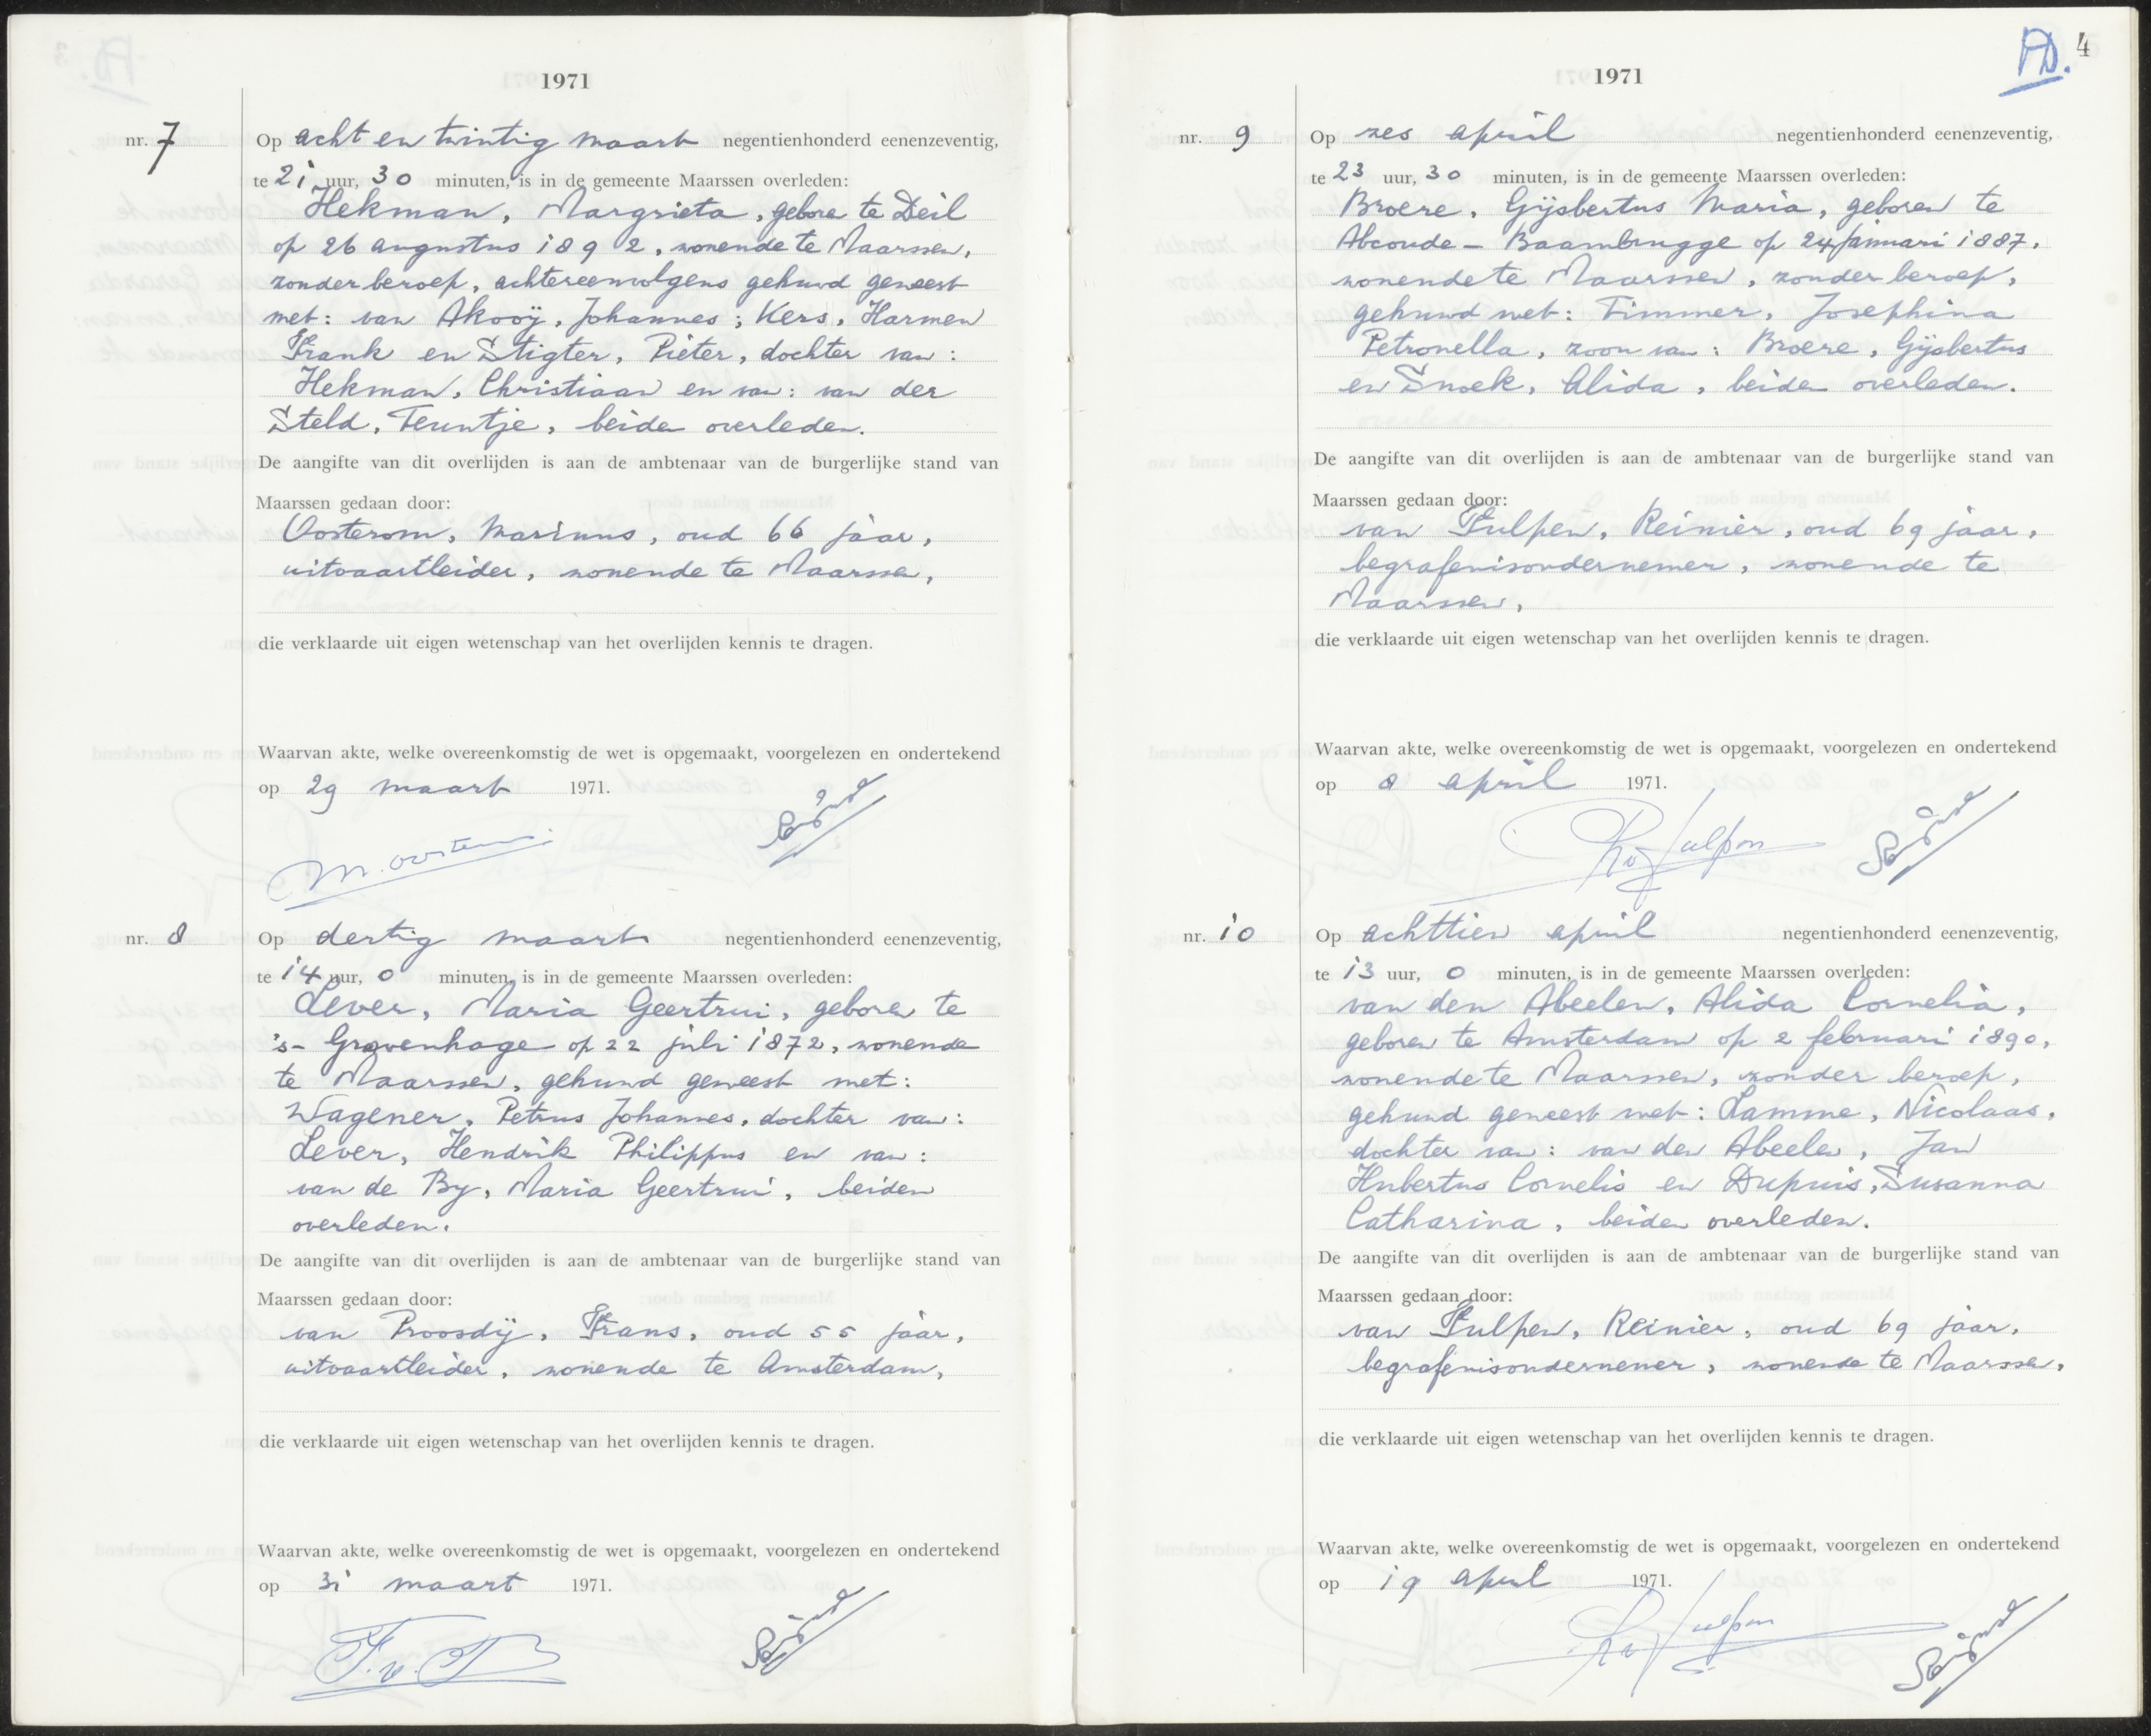 1971
nr. 7
Op acht en twintig maart negentienhonderd eenenzeventig,
te 21 uur, 30 minuten, is in de gemeente Maarssen overleden:
Hekman, Margrieta, gebore te Deil
op 26 augustus 1892, wonende te Maarssen,
zonder beroep, achtereenvolgens gehuwd geweest
met: van Akooÿ, Johannes; Kers, Harmen
Frank en Stigter, Pieter, dochter van:
Hekman, Christiaan en van: van der
Steld, Teuntje, beiden overleden.
De aangifte van dit overlijden is aan de ambtenaar van de burgerlijke stand van
Maarssen gedaan door:
Oosterom, Marinus, oud 66 jaar,
uitvaartleider, wonende te Maarssen,
die verklaarde uit eigen wetenschap van het overlijden kennis te dragen.
Waarvan akte, welke overeenkomstig de wet is opgemaakt, voorgelezen en ondertekend
op 29 maart 1971.
nr. 8
Op dertig maart negentienhonderd eenenzeventig,
te 14 uur, 0 minuten, is in de gemeente Maarssen overleden:
Lever, Maria Geertrui, geboren te
's-Gravenhage op 22 juli 1872, wonende
te Maarssen, gehuwd geweest met:
Wagener, Petrus Johannes, dochter van:
Lever, Hendrik Philippus en van:
van de By, Maria Geertrui, beiden
overleden.
De aangifte van dit overlijden is aan de ambtenaar van de burgerlijke stand van
Maarssen gedaan door:
van Proosdÿ, Frans, oud 55 jaar,
uitvaartleider, wonende te Amsterdam,
die verklaarde uit eigen wetenschap van het overlijden kennis te dragen.
Waarvan akte, welke overeenkomstig de wet is opgemaakt, voorgelezen en ondertekend
op 31 maart 1971.
4
1971
nr. 9
Op zes april negentienhonderd eenenzeventig,
te 23 uur, 30 minuten, is in de gemeente Maarssen overleden:
Broere, Gÿsbertus Maria, geboren te
Abcoude - Baambrugge op 24 januari 1887,
wonende te Maarssen, zonder beroep,
gehuwd met: Timmer, Josephina
Petronella, zoon van: Broere, Gÿsbertus
en Snoek, Alida, beiden overleden.
De aangifte van dit overlijden is aan de ambtenaar van de burgerlijke stand van
Maarssen gedaan door:
van Tulpen, Reinier, oud 69 jaar,
begrafenisondernemer, wonende te
Maarssen,
die verklaarde uit eigen wetenschap van het overlijden kennis te dragen.
Waarvan akte, welke overeenkomstig de wet is opgemaakt, voorgelezen en ondertekend
op 8 april 1971.
nr. 10
Op achttien april negentienhonderd eenenzeventig,
te 13 uur, 0 minuten, is in de gemeente Maarssen overleden:
van den Abeelen, Alida Cornelia,
geboren te Amsterdam op 2 februari 1890,
wonende te Maarssen, zonder beroep,
gehuwd geweest met: Lamme, Nicolaas,
dochter van: van den Abeelen, Jan
Hubertus Cornelis en Dupuis, Susanna
Catharina, beiden overleden.
De aangifte van dit overlijden is aan de ambtenaar van de burgerlijke stand van
Maarssen gedaan door:
van Tulpen, Reinier, oud 69 jaar,
begrafenisondernemer, wonende te Maarssen,
die verklaarde uit eigen wetenschap van het overlijden kennis te dragen.
Waarvan akte, welke overeenkomstig de wet is opgemaakt, voorgelezen en ondertekend
op 19 april 1971.